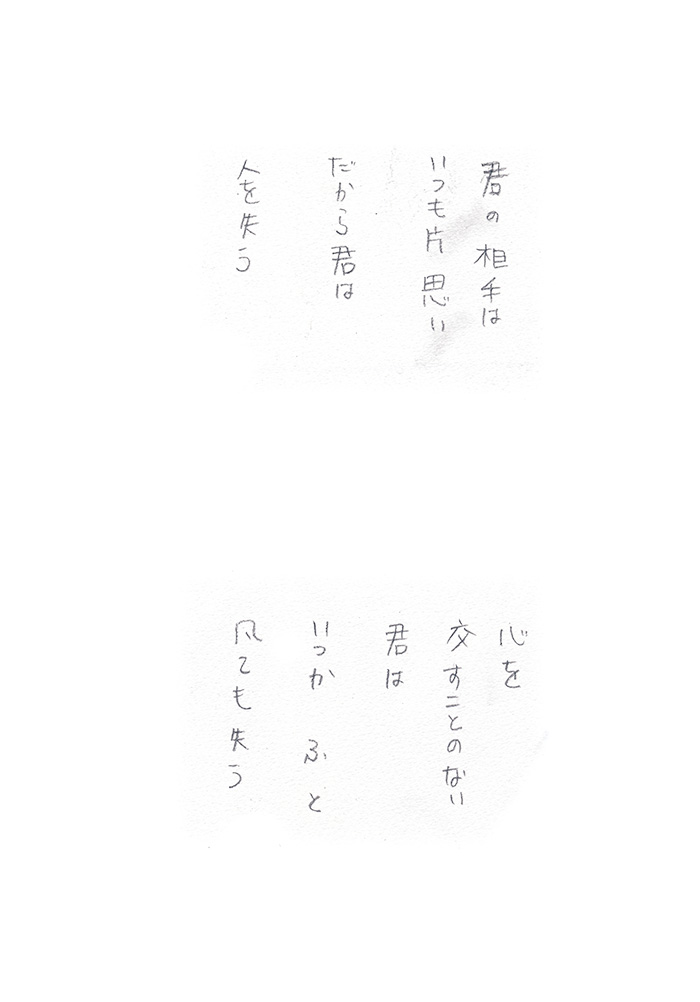 君の相手は
いつも片思い
だから君は
人を失う
心を
交すことのない
君は
いつか ふと
ても失う